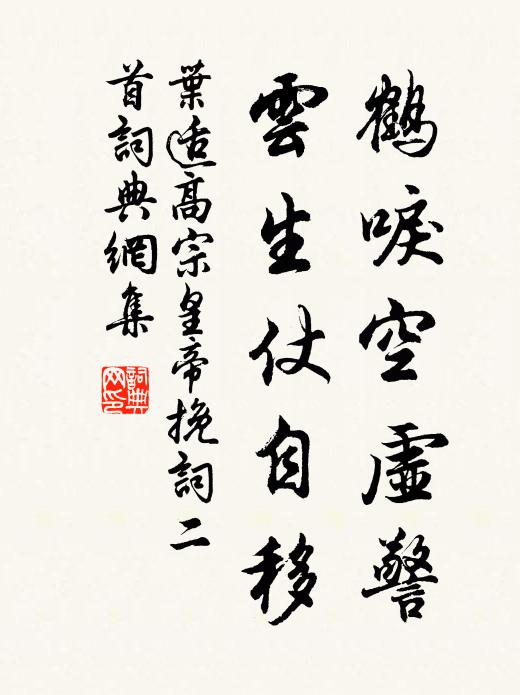 鶴唳空虛警
雲生仗自移
葉適高宗皇帝挽詞二
首詞典網集
詞典
网印